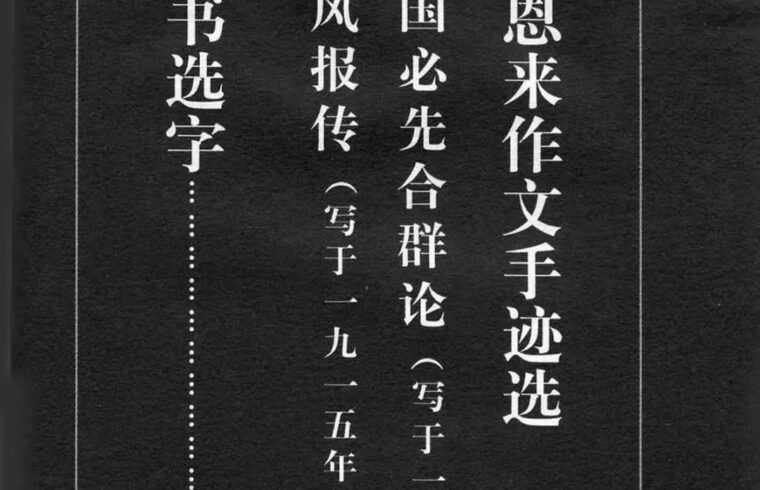 恩来作文手迹选
国必先合群论(写于一
风报传(写于一九一五年
书选字……………………